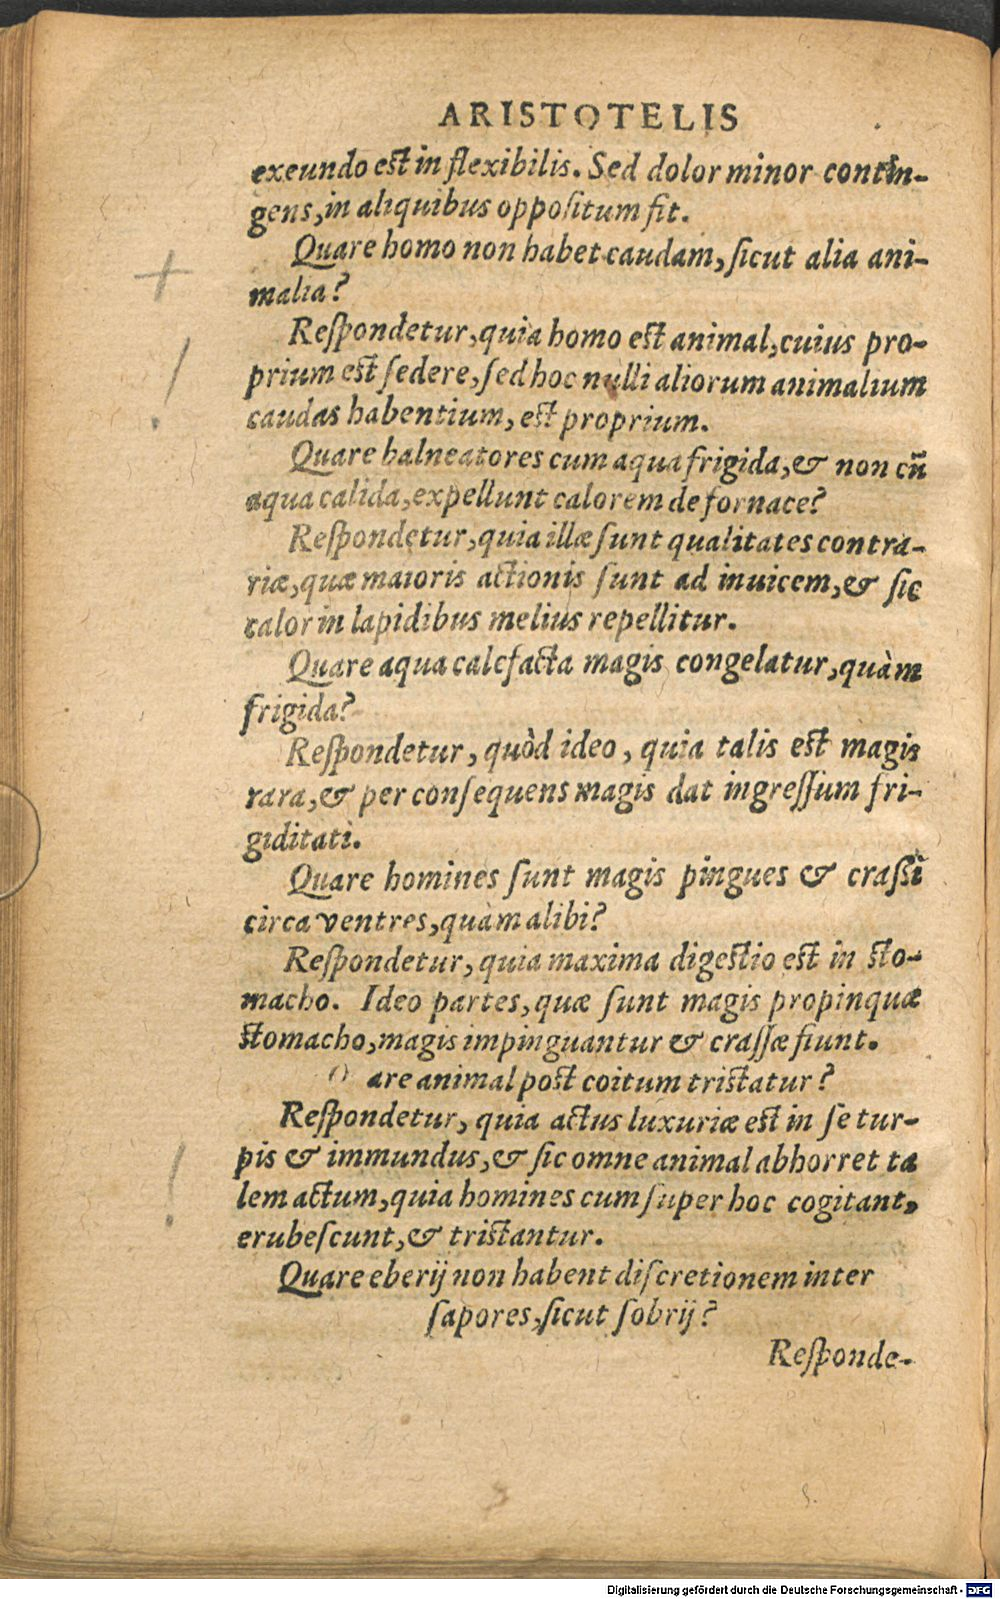 ARISTOTELIS
exeundo est in flexibilis. Sed dolor minor contin-
gens, in aliquibus oppoſitum fit.
Quare homo non habet caudam, ſicut alia ani-
malia?
Reſpondetur, quia homo est animal, cuius pro-
prium est ſedere, ſed hoc nulli aliorum animalium
caudas habentium, est proprium.
Quare balneatores cum aqua frigida, & non cū
aqua calida, expellunt calorem de fornace?
Reſpondetur, quia illæ ſunt qualitates contra-
riæ, quæ maioris actionis ſunt ad inuicem, & ſic
calor in lapidibus melius repellitur.
Quare aqua calefacta magis congelatur, quàm
frigida?
Reſpondetur, quòd ideo, quia talis est magis
rara, & per conſequens magis dat ingreſſum fri-
giditati.
Quare homines ſunt magis pingues & craſſi
circa ventres, quàm alibi?
Reſpondetur, quia maxima digestio est in sto-
macho. Ideo partes, quæ ſunt magis propinquæ
stomacho, magis impinguantur & craſſæ fiunt.
are animal post coitum tristatur?
Reſpondetur, quia actus luxuriæ est in ſe tur-
pis & immundus, & ſic omne animal abhorret ta
lem actum, quia homines cum ſuper hoc cogitant,
erubeſcunt, & tristantur.
Quare eberij non habent diſcretionem inter
ſapores, ſicut ſobrij?
Reſponde-
Digitalisierung gefördert durch die Deutsche Forschungsgemeinschaft - DFG